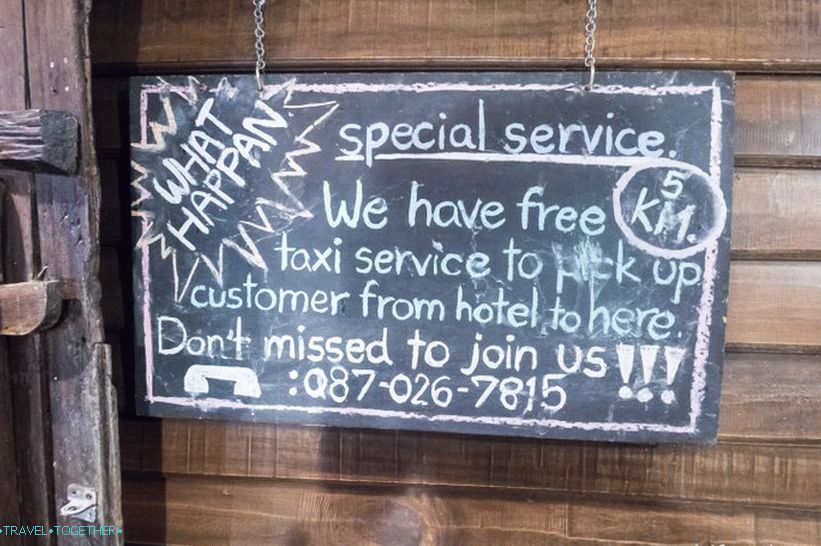 WHAT
HAPPAN
special service.
We have free 5 KM.
taxi service to pick up
customer from hotel to here.
Don't missed to join us !!!
:087-026-7815
•TRAVEL•TOGETHER•